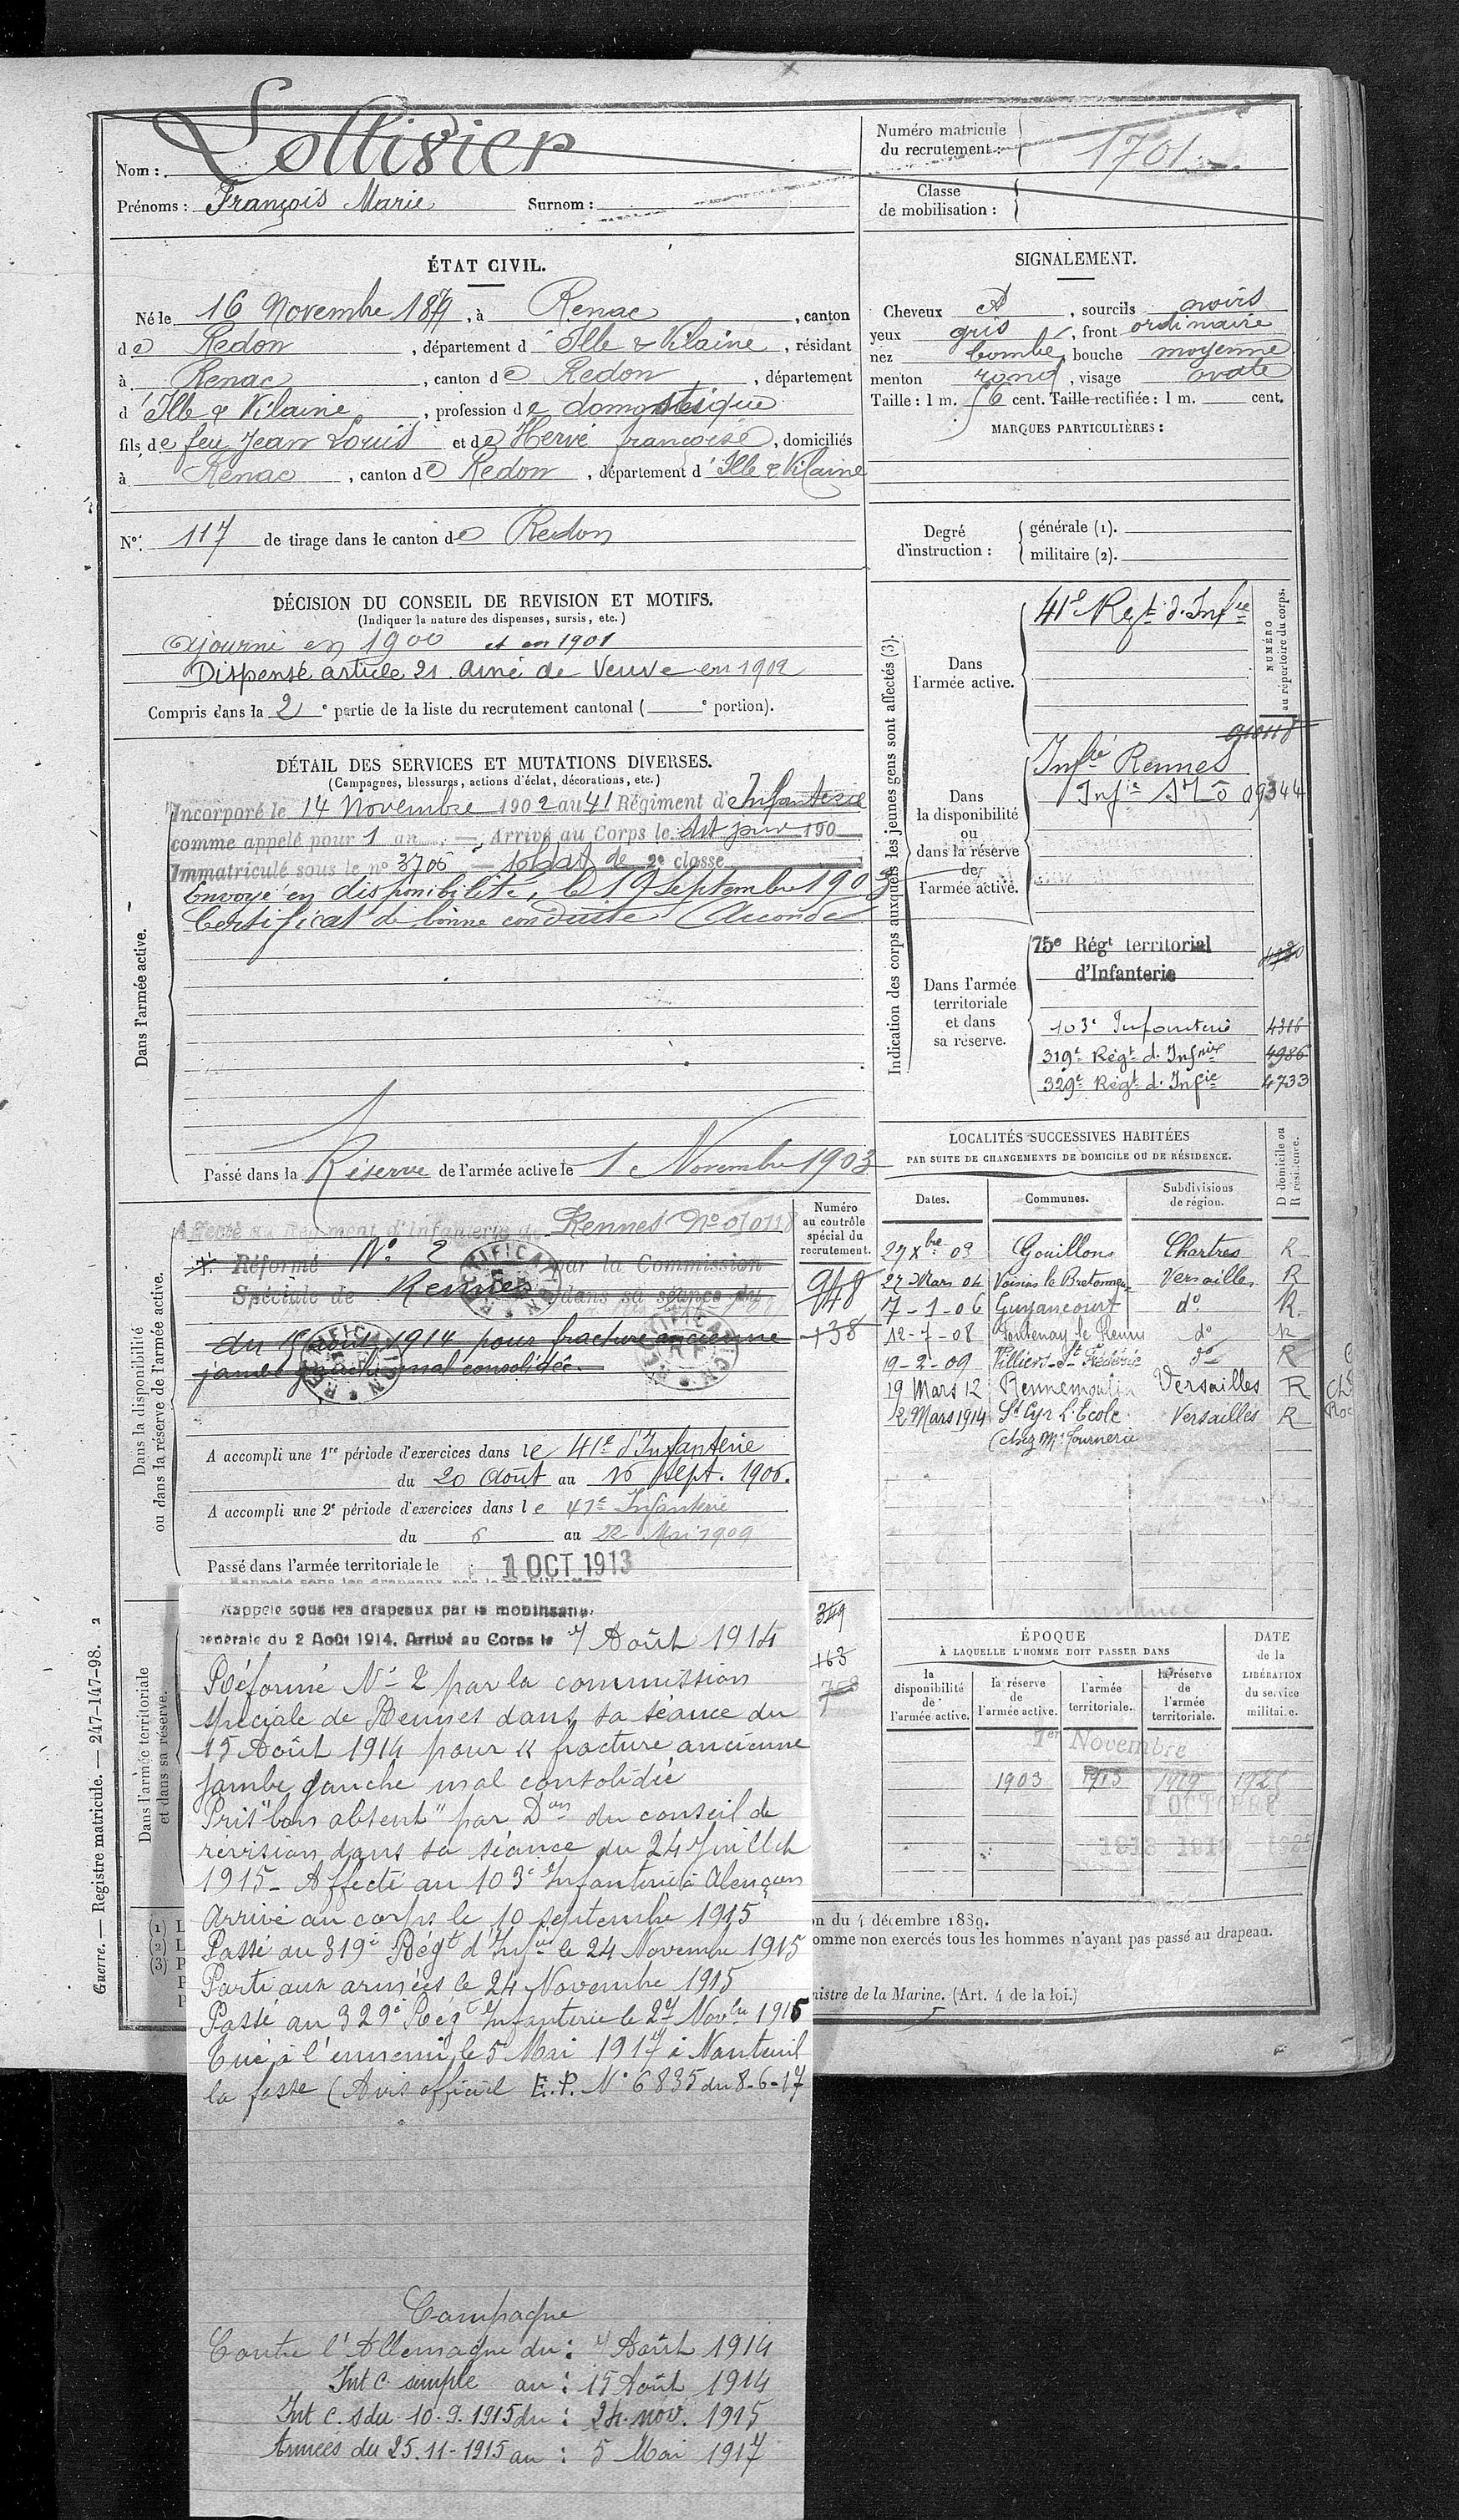 Nom : Lollivier
Prénoms : François Marie Surnom :
Numéro matricule du recrutement : 1701
Classe de mobilisation :
ÉTAT CIVIL.
Né le 16 Novembre 1879, à Renac, canton
de Redon, département d'Ille & Vilaine, résidant
à Renac, canton de Redon, département
d'Ille & Vilaine, profession de domestique
fils de feu Jean Louis et de Hervé françoise, domiciliés
à Renac, canton de Redon, département d'Ille & Vilaine
N° 117 de tirage dans le canton de Redon
SIGNALEMENT.
Cheveux et, sourcils noirs
yeux gris, front ordinaire
nez bombé, bouche moyenne
menton rond, visage ovale
Taille : 1 m. 56 cent. Taille rectifiée : 1 m. cent.
MARQUES PARTICULIÈRES :
Degré d'instruction : générale (1).
militaire (2).
DÉCISION DU CONSEIL DE REVISION ET MOTIFS.
(Indiquer la nature des dispenses, sursis, etc.)
Ajourné en 1900 et en 1901
Dispensé article 21 Ainé de Veuve en 1902
Compris dans la 2e partie de la liste du recrutement cantonal ( e portion).
DÉTAIL DES SERVICES ET MUTATIONS DIVERSES.
(Campagnes, blessures, actions d'éclat, décorations, etc.)
Dans l'armée active.
Incorporé le 14 Novembre 1902 au 41 Régiment d'Infanterie
comme appelé pour 1 an. — Arrivé au Corps le dit jour 190
Immatriculé sous le n° 3706 — soldat de 2e classe
Envoyé en disponibilité, le 19 Septembre 1903
Certificat de bonne conduite Accordé
Passé dans la Réserve de l'armée active le 1e Novembre 1903
Indication des corps auxquels les jeunes gens sont affectés (3).
NUMÉRO au répertoire du corps.
Dans l'armée active.
41e Regt d'Infie
Dans la disponibilité ou dans la réserve de l'armée active.
010118
Infie Rennes
09344
Dans l'armée territoriale et dans sa réserve.
75e Régt territorial
d'Infanterie
103e Infanterie 4316
319e Régt d'Infrie 4986
329e Régt d'Infie 4733
Dans la disponibilité ou dans la réserve de l'armée active.
Numéro au contrôle spécial du recrutement.
Affecté au Régiment d'Infanterie de Rennes No 010118
Réformé N° 2 par la Commission
Spéciale de Rennes dans sa séance du
du 15 août 1914 pour fracture ancienne
jambe gauche mal consolidée.
948
138
A accompli une 1re période d'exercices dans le 41e d'Infanterie
du 20 Août au 16 Sept. 1906.
A accompli une 2e période d'exercices dans le 41e Infanterie
du 6 au 22 Mai 1909
Passé dans l'armée territoriale le 1 OCT 1913
LOCALITÉS SUCCESSIVES HABITÉES
PAR SUITE DE CHANGEMENTS DE DOMICILE OU DE RÉSIDENCE.
Dates. Communes. Subdivisions de région. D domicile ou R résidence.
27 Xbre 03 Gouillons Chartres R
27 Mars 04 Voisins le Bretonneux Versailles R
7-1-06 Guyancourt do R
12-7-08 Fontenay le Fleury do R
19-2-09 Villiers St Frédéric do R
19 Mars 12 Rennemoulin Versailles R
2 Mars 1914 St Cyr l'Ecole Versailles R
(chez Mr Fournerie
Dans l'armée territoriale et dans sa réserve.
Rappelé sous les drapeaux par la mobilisation
générale du 2 Août 1914. Arrivé au Corps le 7 Août 1914
Réformé No 2 par la commission
spéciale de Rennes dans sa séance du
15 Août 1914 pour « fracture ancienne
jambe gauche mal consolidée
Pris "bon absent" par Don du conseil de
révision dans sa séance du 24 Juillet
1915 - Affecté au 103e Infanterie à Alençon
Arrivé au corps le 10 septembre 1915
Passé au 319e Régt d'Infie le 24 Novembre 1915
Parti aux armées le 24 Novembre 1915
Passé au 329e Regt Infanterie le 27 Novbre 1916
Tué à l'ennemi le 5 Mai 1917 à Nanteuil
la fosse (Avis officiel E.P. N° 6835 du 8-6-17
349
163
ÉPOQUE
À LAQUELLE L'HOMME DOIT PASSER DANS
la disponibilité de l'armée active. la réserve de l'armée active. l'armée territoriale. la réserve de l'armée territoriale.
DATE de la LIBÉRATION du service militaire.
1er Novembre
1903 1913 1919
1 OCTOBRE
1913 1919
on du 4 décembre 1889.
omme non exercés tous les hommes n'ayant pas passé au drapeau.
nistre de la Marine. (Art. 4 de la loi.)
Guerre. — Registre matricule. — 247-147-98. 2
Campagne
Contre l'Allemagne du : 7 Août 1914
Int C. simple au : 15 Août 1914
Int C. s du 10.9.1915 du : 24. nov. 1915
Armées du 25.11-1915 au : 5 Mai 1917